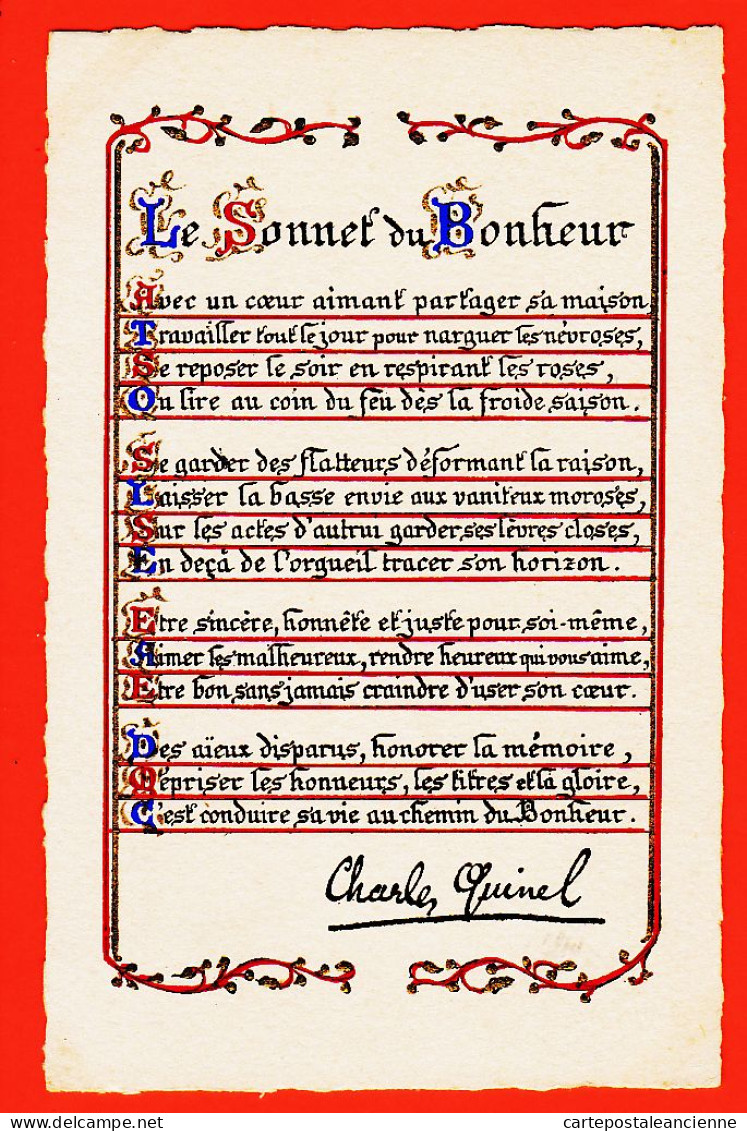 Le Sonnet du Bonheur
Avec un cœur aimant partager sa maison
Travailler tout le jour pour narguer les névroses,
Se reposer le soir en respirant les roses,
Ou lire au coin du feu dès la froide saison.
Se garder des flatteurs déformant la raison,
Laisser la basse envie aux vaniteux moroses,
Sur les actes d'autrui garder ses lèvres closes,
En deçà de l'orgueil tracer son horizon.
Etre sincère, honnête et juste pour soi-même,
Aimer les malheureux, rendre heureux qui vous aime,
Etre bon sans jamais craindre d'user son cœur.
Des aïeux disparus, honorer la mémoire,
Mépriser les honneurs, les titres et la gloire,
C'est conduire sa vie au chemin du Bonheur.
Charles Quinel
cartepostaleancienne